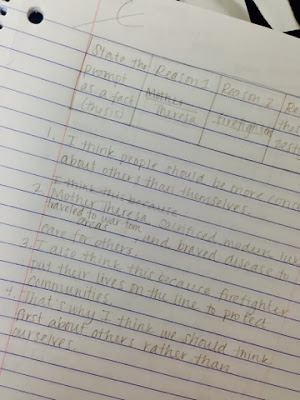 State the Reason 1 Reason 2 Re
prompt Mother the
as a fact Theresa firefighters rest
(thesis)
1. I think people should be more conc
about others than themselves.
I think this because
2. Mother Theresa sacrificed modern lux
traveled to war torn
areas, and braved disease to
care for others.
3. I also think this because firefighter
put their lives on the line to protect
communities.
4. That's why I think we should think
first about others rather than
ourselves.